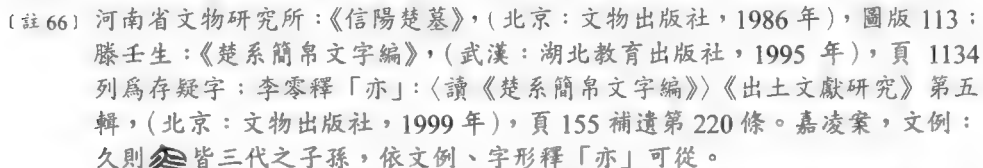 〔註66〕河南省文物研究所:《信陽楚墓》,(北京:文物出版社,1986 年),圖版 113;
滕壬生:《楚系簡帛文字編》,(武漢:湖北教育出版社,1995 年),頁 1134
列爲存疑字;李零釋「亦」:〈讀《楚系簡帛文字編》〉《出土文獻研究》第五
輯,(北京:文物出版社,1999 年),頁 155 補遺第 220 條。嘉凌案,文例:
久則皆三代之子孫,依文例、字形釋「亦」可從。